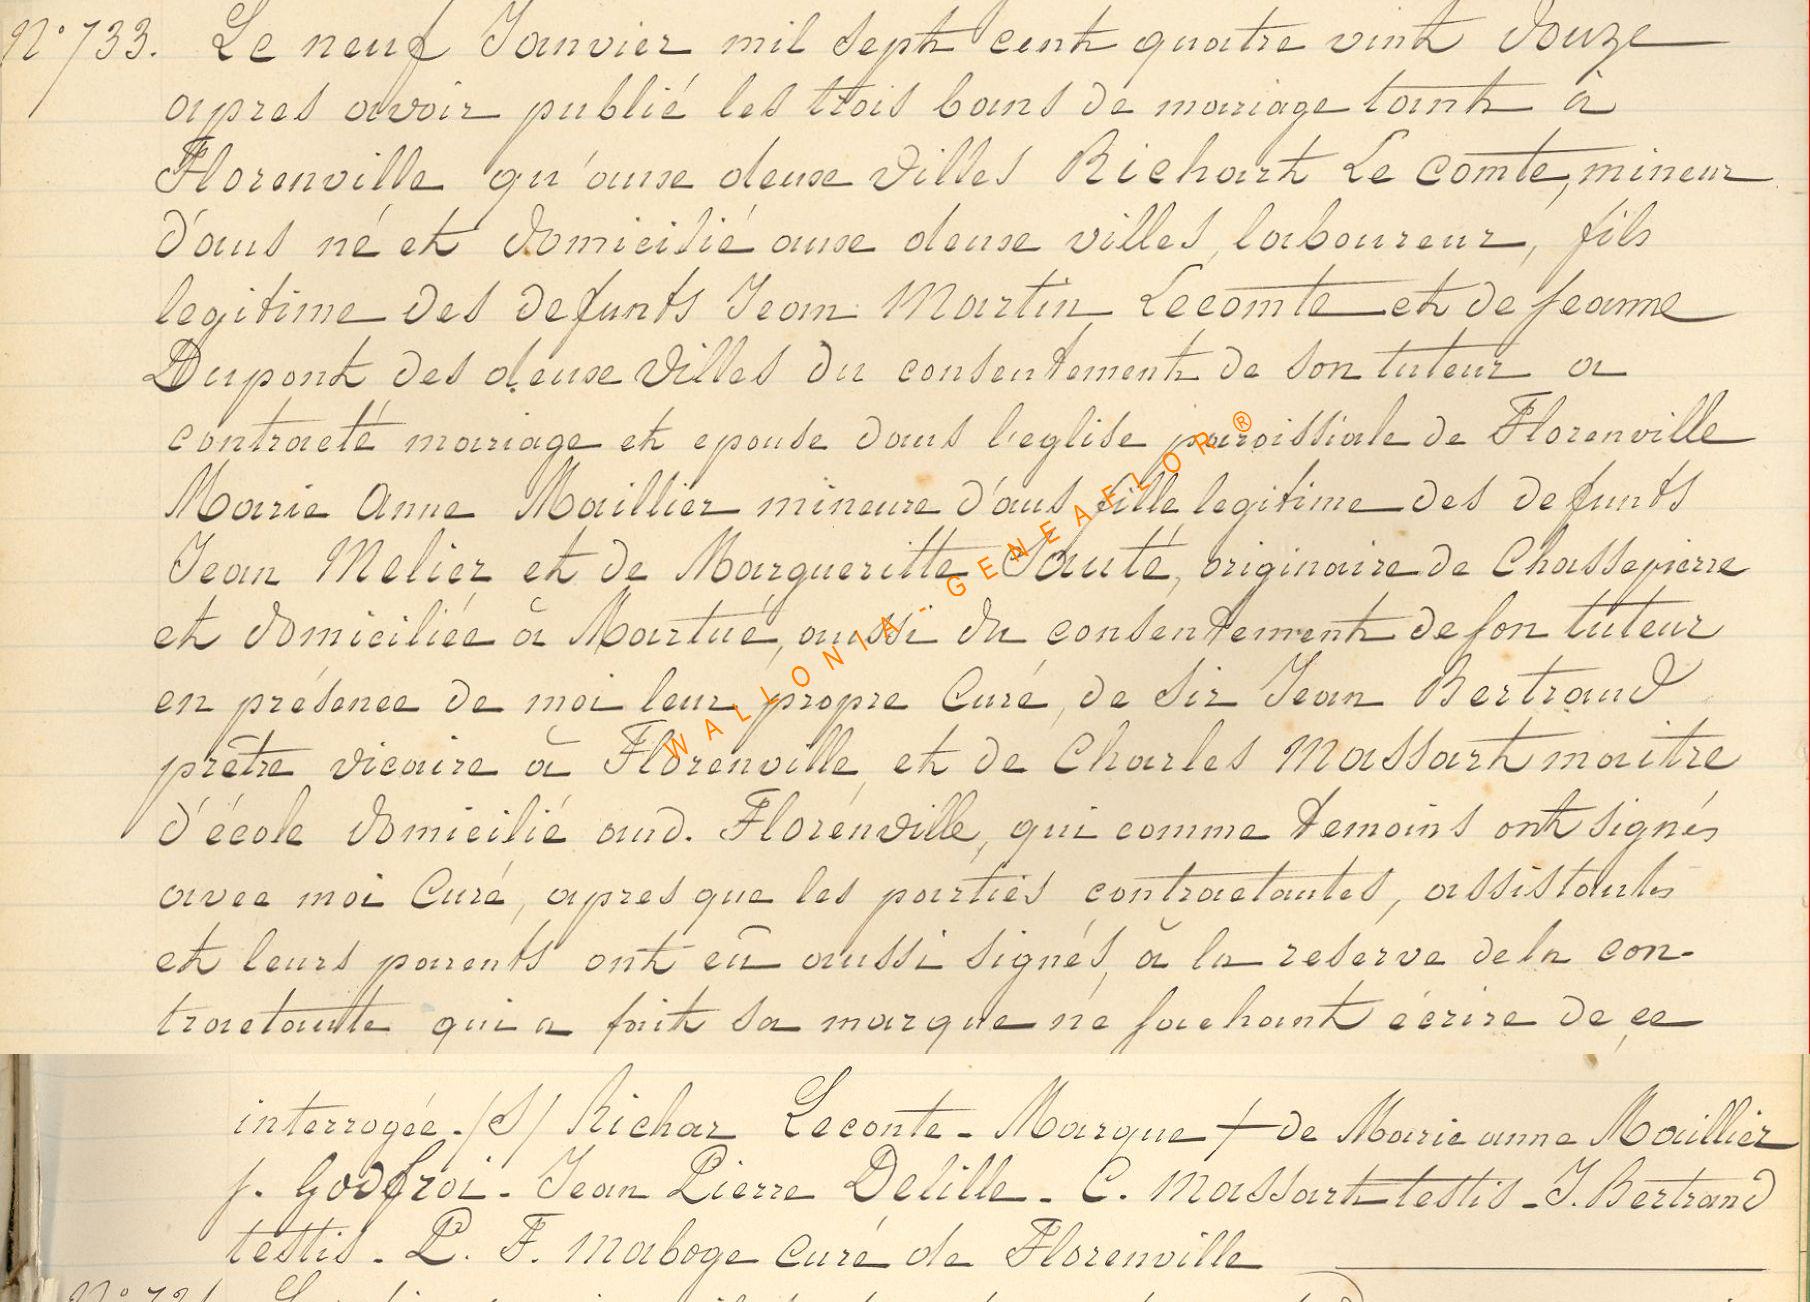 N° 733. Le neuf Janvier mil sept cent quatre vint douze
apres avoir publié les trois bans de mariage tant à
Florenville qu'aux deux Villes Richart Le Comte, mineur
d'ans né et domicilié aux deux villes, laboureur, fils
legitime des defunts Jean Martin Lecomte et de jeanne
Dupont des deux Villes du consentement de son tuteur a
contracté mariage et epouse dans l'eglise paroissiale de Florenville
Marie Anne Maillier mineure d'ans fille legitime des defunts
Jean Melier et de Margueritte Sauté, originaire de Chassepierre
et domiciliée à Martué, aussi du consentement de son tuteur
en présence de moi leur propre Curé, de Sir Jean Bertrand
prêtre vicaire à Florenville, et de Charles Massart maitre
d'école domicilié aud. Florenville, qui comme temoins ont signés
avec moi Curé, apres que les parties contractantes, assistants
et leurs parents ont eû aussi signés, à la reserve de la con-
tractante qui a fait sa marque ne sachant écrire de ce
interrogée. /S/ Richar Leconte - Marque + de Marie anne Maillier
j. Godfroi - Jean Pierre Delille - C. Massart testis - J. Bertrand
testis - P. F. Maboge curé de Florenville
WALLONIA-GENEAFLOR®